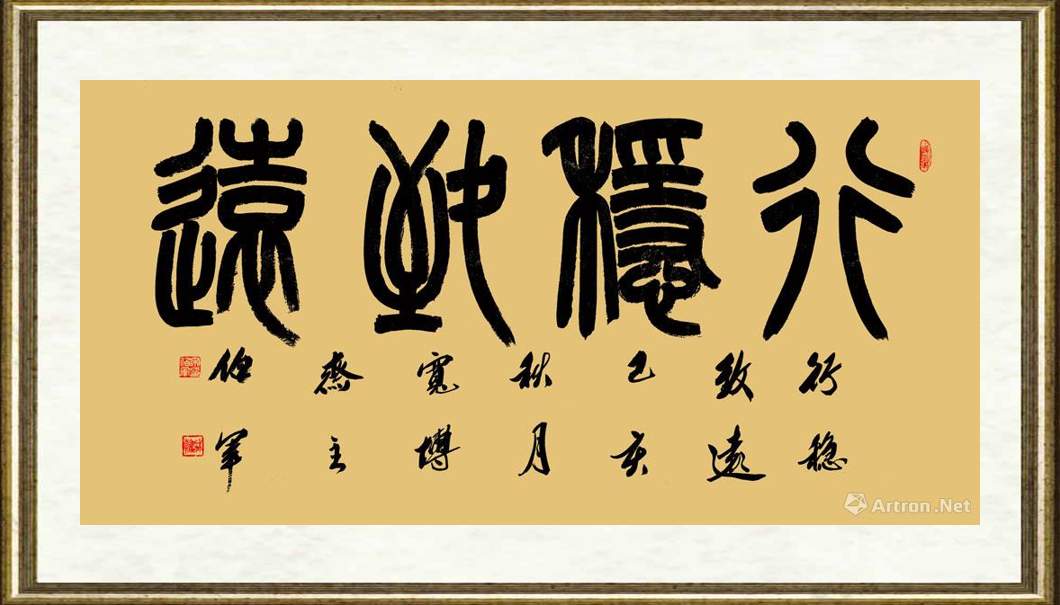 行穩致遠
行稳
致遠
己亥
秋月
寬博
齋主
伯軍
Artron.Net